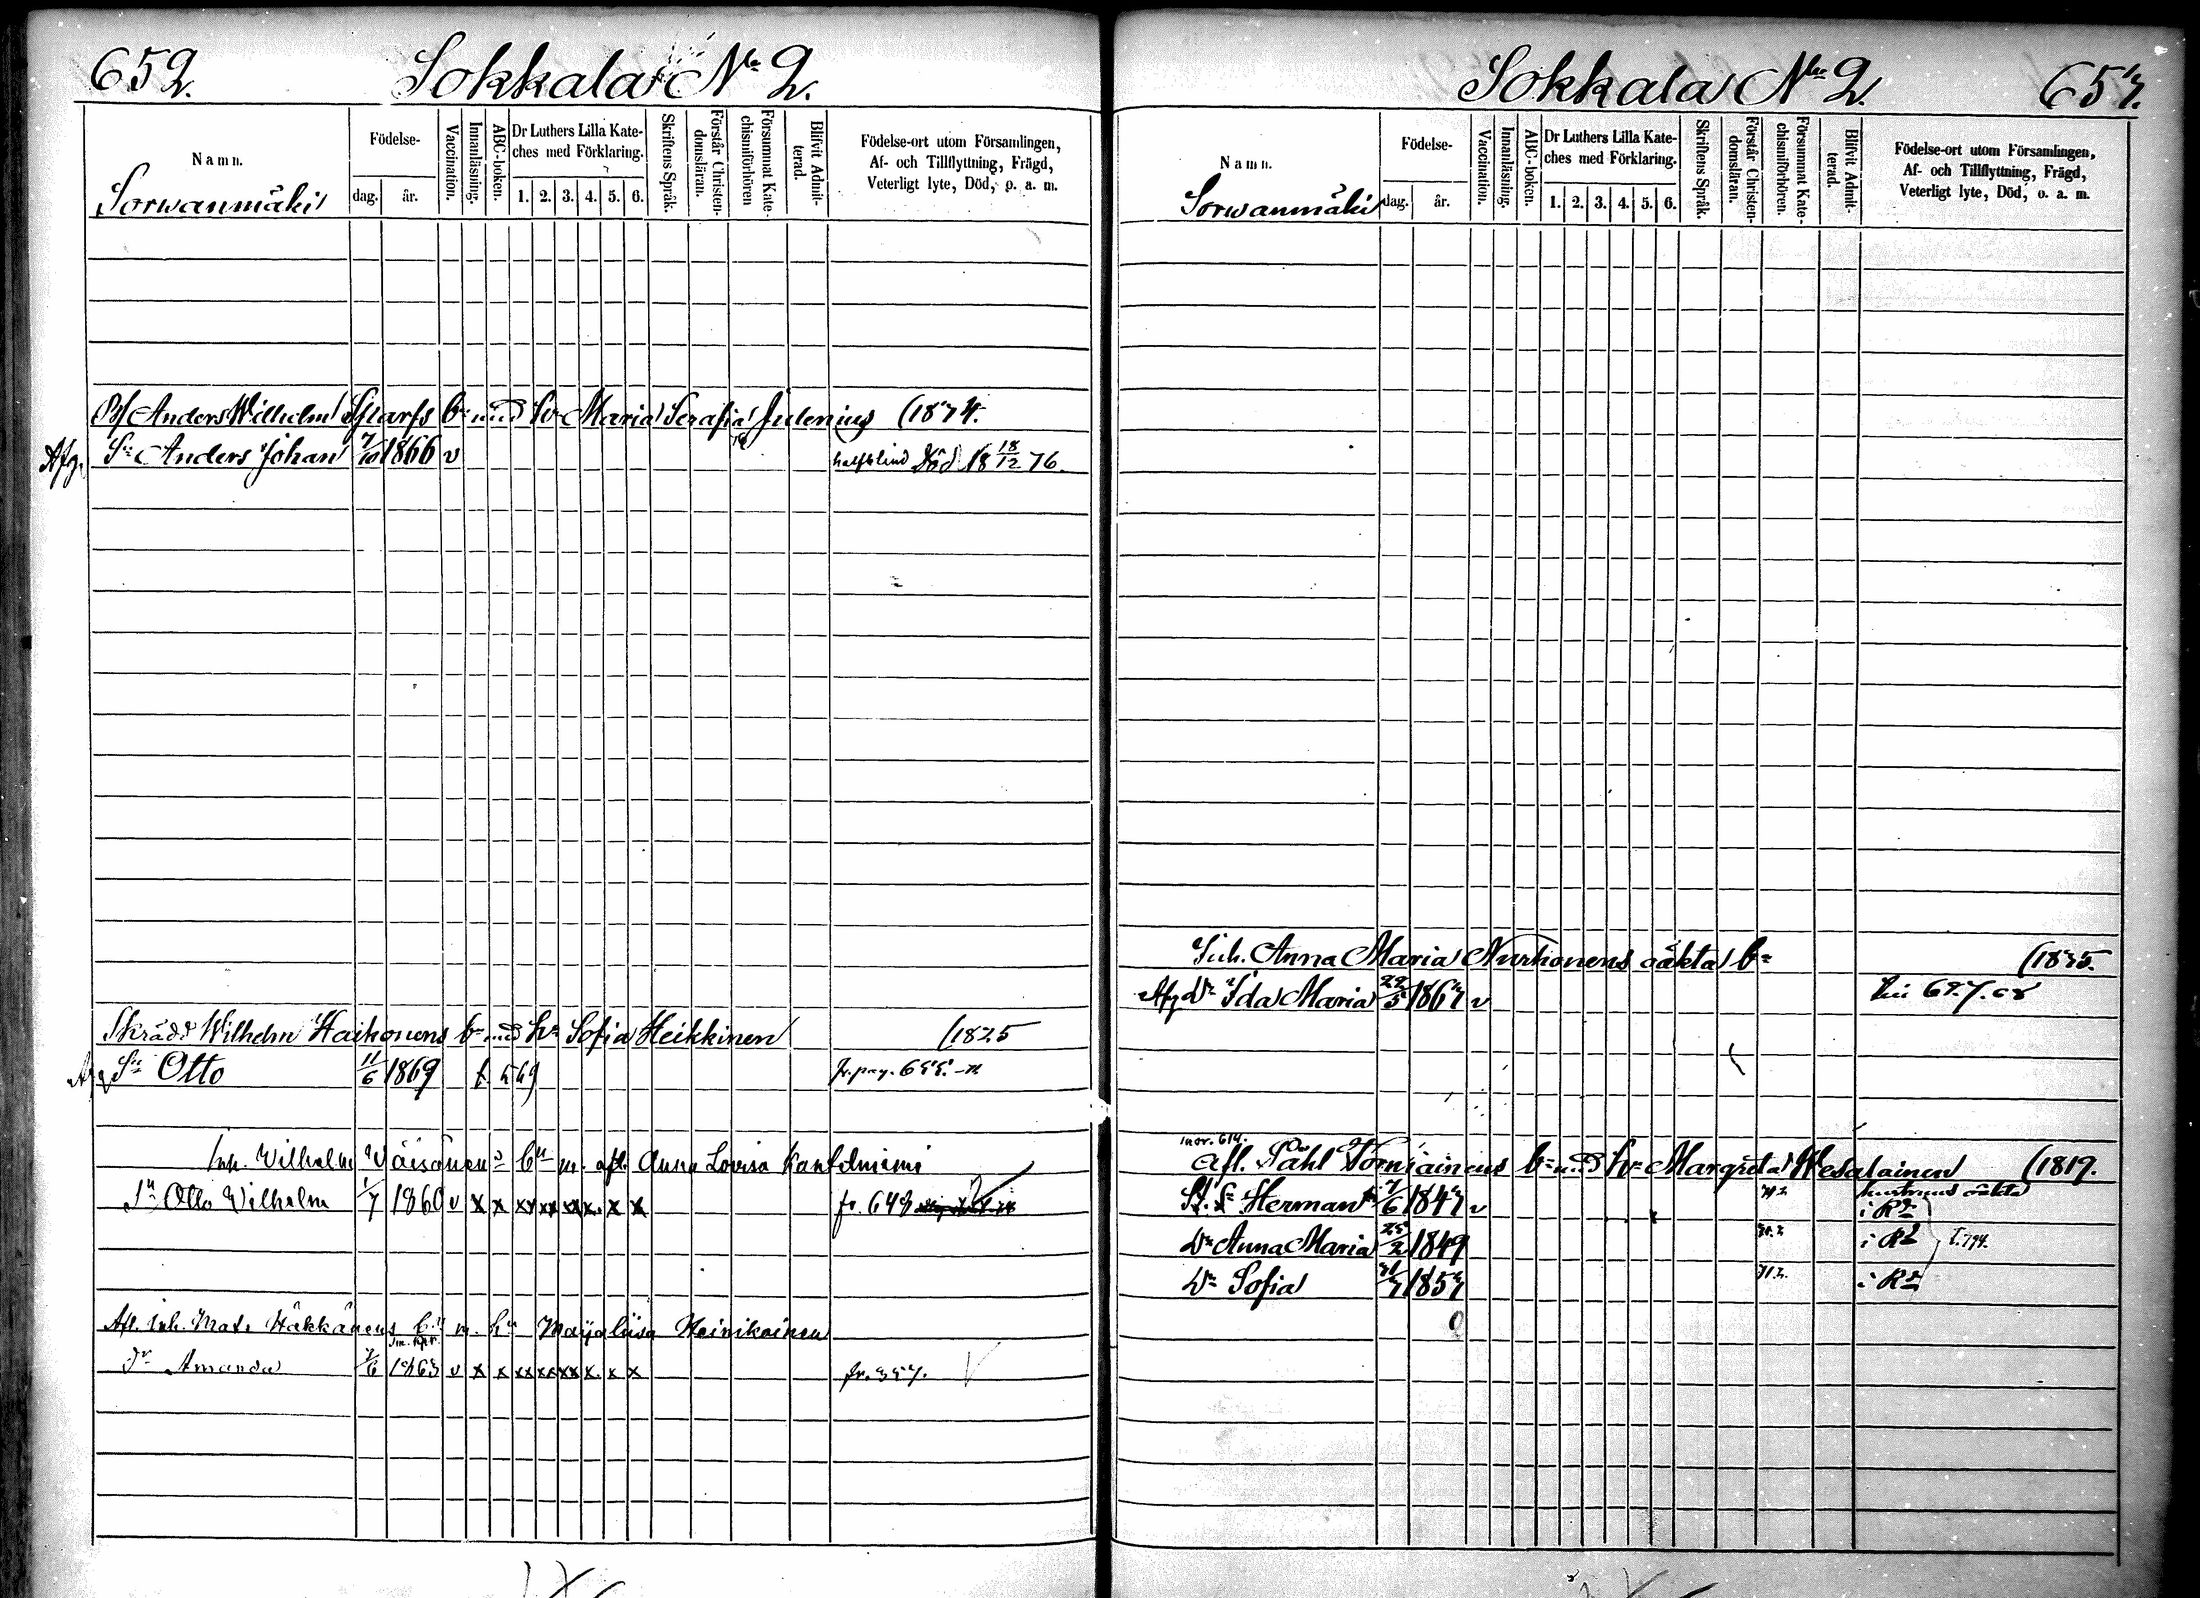 652. Sokkala No 2.
Namn.
Sorwanmäki
Födelse-
dag. år.
Vaccination.
Innanläsning.
ABC-boken.
Dr Luthers Lilla Kate-
ches med Förklaring.
1. 2. 3. 4. 5. 6.
Skriftens Språk.
Förstår Christen-
domsläran.
Försummat Kate-
chismiförhören
Blifvit Admit-
terad.
Födelse-ort utom Församlingen,
Af- och Tillflyttning, Frägd,
Veterligt lyte, Död, o. a. m.
Anders Wilhelm Sparfs bn med hu Maria Serafia Julenius
Sn Anders Johan 7/10 1866 v halfblind Död 18 18/12 76.
Skrädd Wilhelm Haikonens bn med hu Sofia Heikkinen (1825
Sn Otto 11/6 1869 fr. pag.
Inh. Wilhelm Väisänens bn m. afl. Anna Lovisa
Sn Otto Wilhelm 1/7 1860 v x x xx xx xx x. x x fr. 648
Afl. Inh. Mats Häkkänens bn m. hu Maija Liisa Heinikainen
Dr Amanda 7/6 1863 v x x xx xx xx x. x x fr. 357.
Sokkala No 2. 653.
Namn.
Sorwanmäki
Födelse-
dag. år.
Vaccination.
Innanläsning.
ABC-boken.
Dr Luthers Lilla Kate-
ches med Förklaring.
1. 2. 3. 4. 5. 6.
Skriftens Språk.
Förstår Christen-
domsläran.
Försummat Kate-
chismiförhören.
Blifvit Admit-
terad.
Födelse-ort utom Församlingen,
Af- och Tillflyttning, Frägd,
Veterligt lyte, Död, o. a. m.
Inh. Anna Maria Nurhonens oäkta bn (1835.
Dr Ida Maria 22/5 1867 v
Afl. Påhl Torniainens bn med hu Margreta Wesalainen (1819.
Herman 7/6 1847 v hustruns oäkta
i R
Dr Anna Maria 25/2 1849 i R
Dr Sofia 31/7 1857 i R